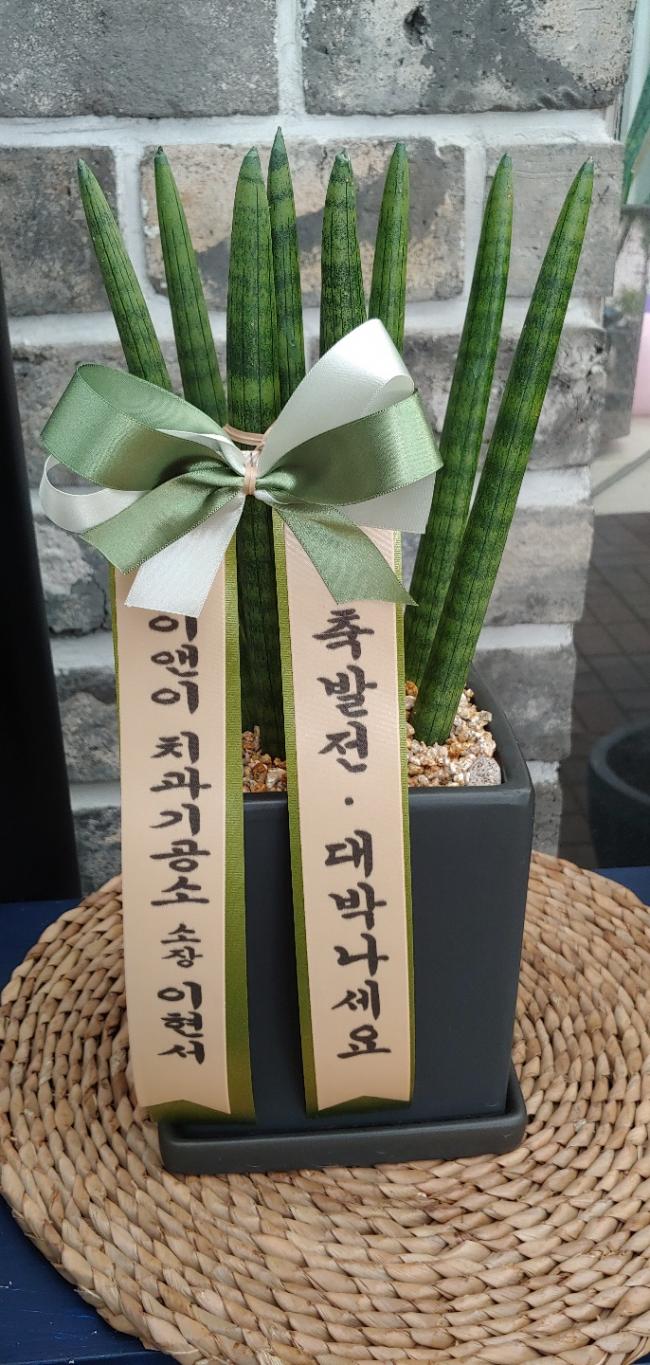 이앤이 치과기공소 소장 이현서
축발전 · 대박나세요